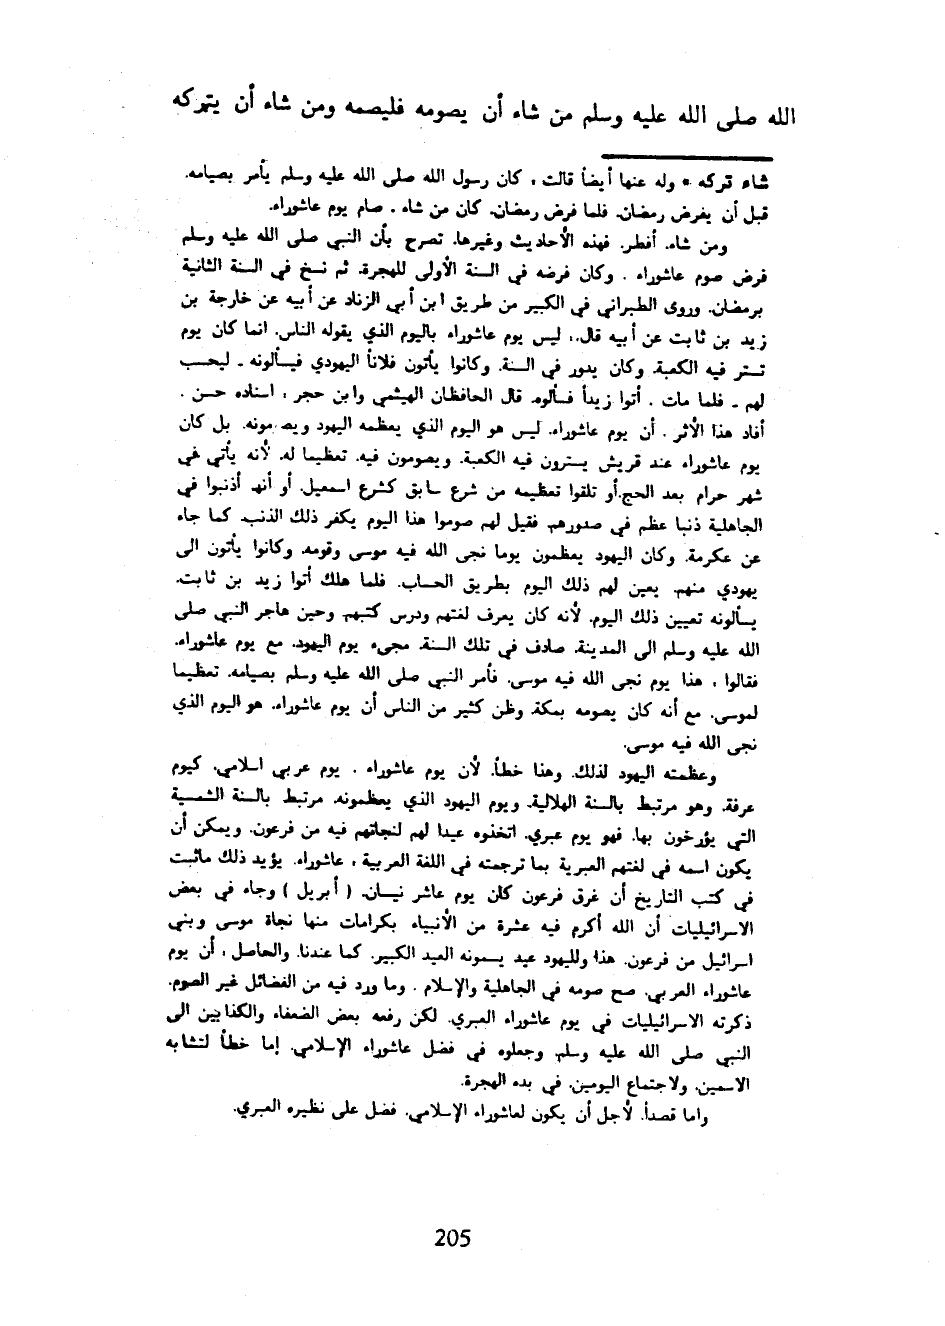 الله صلى الله عليه وسلم من شاء أن يصومه فليصمه ومن شاء أن يتركه
شاء تركه » وله عنها أيضاً قالت ، كان رسول الله صلى الله عليه وسلم يأمر بصيامه.
قبل أن يفرض رمضان. فلما فرض رمضان. كان من شاء . صام يوم عاشوراء.
ومن شاء. أفطر. فهذه الأحاديث وغيرها. تصرح بأن النبي صلى الله عليه وسلم
فرض صوم عاشوراء . وكان فرضه في السنة الأولى للهجرة. ثم نسخ في السنة الثانية
برمضان. وروى الطبراني في الكبير من طريق ابن أبي الزناد عن أبيه عن خارجة بن
زيد بن ثابت عن أبيه قال.، ليس يوم عاشوراء باليوم الذي يقوله الناس. انما كان يوم
تستر فيه الكعبة. وكان يدور في السنة. وكانوا يأتون فلاناً اليهودي فيسألونه ـ ليحسب
لهم ـ فلما مات . أتوا زيداً فسألوه. قال الحافظان الهيثمي وابن حجر ، اسناده حسن .
أفاد هذا الأثر . أن يوم عاشوراء. ليس هو اليوم الذي يعظمه اليهود ويصومونه. بل كان
يوم عاشوراء عند قريش يسترون فيه الكعبة. ويصومون فيه. تعظيما له. لأنه يأتي في
شهر حرام بعد الحج.أو تلقوا تعظيمه من شرع سابق كشرع اسمعيل. أو أنهم أذنبوا في
الجاهلية ذنبا عظم في صدورهم. فقيل لهم صوموا هذا اليوم يكفر ذلك الذنب. كما جاء
عن عكرمة. وكان اليهود يعظمون يوما نجى الله فيه موسى وقومه. وكانوا يأتون الى
يهودي منهم. يعين لهم ذلك اليوم بطريق الحساب. فلما هلك أتوا زيد بن ثابت.
يسألونه تعيين ذلك اليوم. لأنه كان يعرف لغتهم ودرس كتبهم. وحين هاجر النبي صلى
الله عليه وسلم الى المدينة. صادف في تلك السنة. مجيء يوم اليهود. مع يوم عاشوراء.
فقالوا ، هذا يوم نجى الله فيه موسى. فأمر النبي صلى الله عليه وسلم بصيامه. تعظيما
لموسى. مع أنه كان يصومه بمكة. وظن كثير من الناس أن يوم عاشوراء. هو اليوم الذي
نجى الله فيه موسى.
وعظمته اليهود لذلك. وهذا خطأ. لأن يوم عاشوراء . يوم عربي اسلامي. كيوم
عرفة. وهو مرتبط بالسنة الهلالية. ويوم اليهود الذي يعظمونه. مرتبط بالسنة الشمسية
التي يؤرخون بها. فهو يوم عبري. اتخذوه عيدا لهم لنجاتهم فيه من فرعون. ويمكن أن
يكون اسمه في لغتهم العبرية بما ترجمته في اللغة العربية ، عاشوراء. يؤيد ذلك ماثبت
في كتب التاريخ أن غرق فرعون كان يوم عاشر نيسان. ( أبريل ) وجاء في بعض
الاسرائيليات أن الله أكرم فيه عشرة من الأنبياء بكرامات منها نجاة موسى وبني
اسرائيل من فرعون. هذا وللیهود عيد يسمونه العيد الكبير. كما عندنا. والحاصل ، أن يوم
عاشوراء العربي. صح صومه في الجاهلية والإسلام . وما ورد فيه من الفضائل غير الصوم.
ذكرته الاسرائيليات في يوم عاشوراء العبري. لكن رفعه بعض الضعفاء والكذابين الى
النبي صلى الله عليه وسلم. وجعلوه في فضل عاشوراء الإسلامي. إما خطأ لتشابه
الاسمين. ولاجتماع اليومين. في بدء الهجرة.
واما قصداً. لأجل أن يكون لعاشوراء الإسلامي. فضل على نظيره العبري.
205